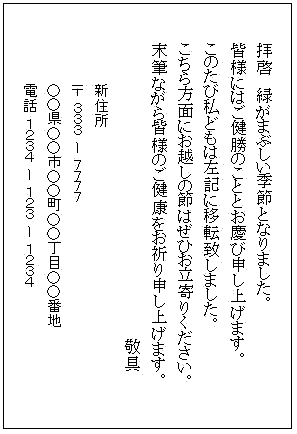 拝啓 緑がまぶしい季節となりました。
皆様にはご健勝のこととお慶び申し上げます。
このたび私どもは左記に移転致しました。
こちら方面にお越しの節はぜひお立寄りください。
末筆ながら皆様のご健康をお祈り申し上げます。
敬具
新住所
〒333ー7777
○○県○○市○○町○○丁目○○番地
電話1234ー123ー1234